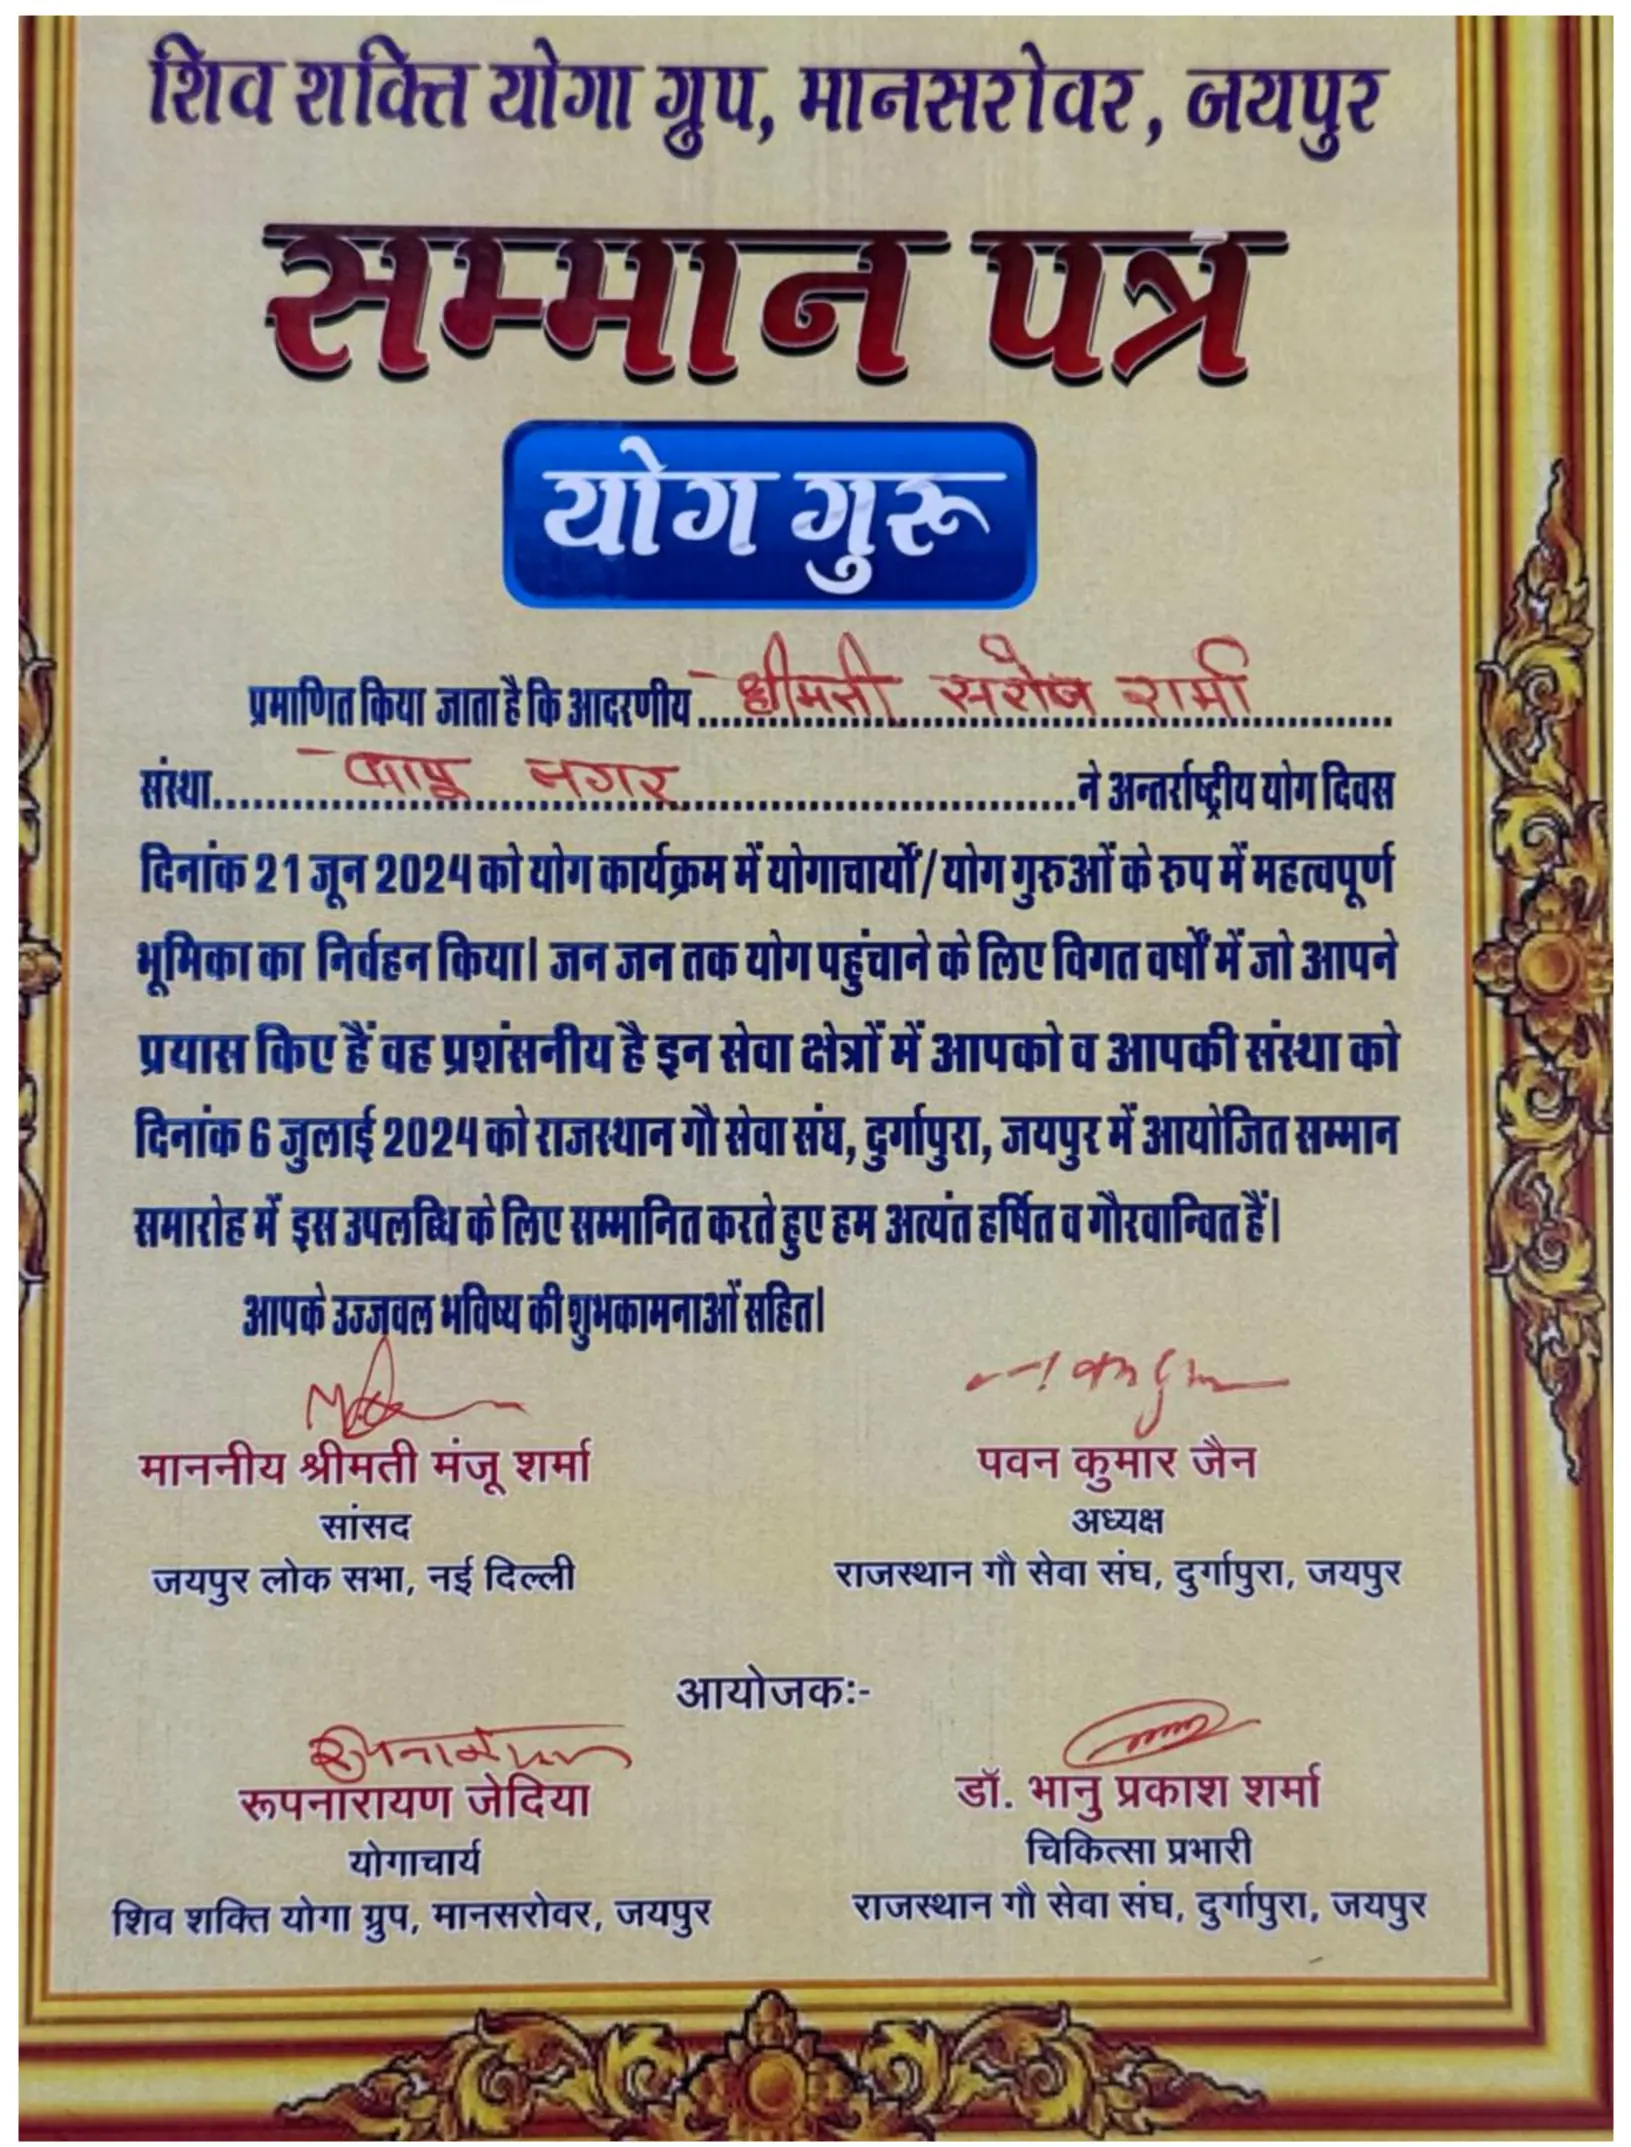 शिव शक्ति योगा ग्रुप, मानसरोवर, जयपुर
सम्मान पत्र
योग गुरू
प्रमाणित किया जाता है कि आदरणीय श्रीमती सरोज शर्मा
संस्था बापू नगर ने अन्तर्राष्ट्रीय योग दिवस
दिनांक 21 जून 2024 को योग कार्यक्रम में योगाचार्यों/योग गुरुओं के रुप में महत्वपूर्ण
भूमिका का निर्वहन किया। जन जन तक योग पहुंचाने के लिए विगत वर्षों में जो आपने
प्रयास किए हैं वह प्रशंसनीय है इन सेवा क्षेत्रों में आपको व आपकी संस्था को
दिनांक 6 जुलाई 2024 को राजस्थान गौ सेवा संघ, दुर्गापुरा, जयपुर में आयोजित सम्मान
समारोह में इस उपलब्धि के लिए सम्मानित करते हुए हम अत्यंत हर्षित व गौरवान्वित हैं।
आपके उज्जवल भविष्य की शुभकामनाओं सहित।
माननीय श्रीमती मंजू शर्मा
सांसद
जयपुर लोक सभा, नई दिल्ली
पवन कुमार जैन
अध्यक्ष
राजस्थान गौ सेवा संघ, दुर्गापुरा, जयपुर
आयोजकः-
रूपनारायण जेदिया
योगाचार्य
शिव शक्ति योगा ग्रुप, मानसरोवर, जयपुर
डॉ. भानु प्रकाश शर्मा
चिकित्सा प्रभारी
राजस्थान गौ सेवा संघ, दुर्गापुरा, जयपुर